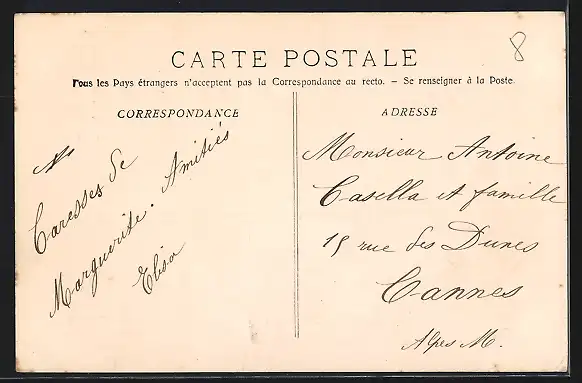 8
CARTE POSTALE
Tous les Pays étrangers n'acceptent pas la Correspondance au recto. – Se renseigner à la Poste.
CORRESPONDANCE
Caresses de
Marguerite. Amitiés
Elisa
ADRESSE
Monsieur Antoine
Casella et famille
15 rue des Dunes
Cannes
Alpes M.